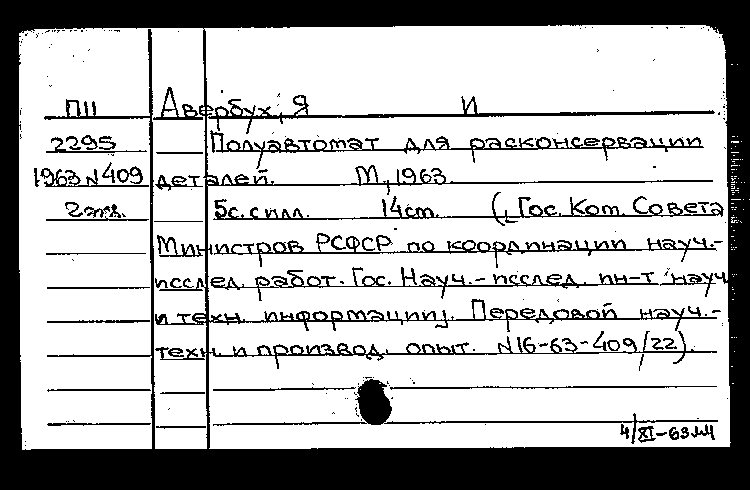 ПII Авербух, Я И
2295 Полуавтомат для расконсервации
1963 N 409 деталей. М, 1963.
2 экз. 5 с. с илл. 14 см. ([Гос. Ком. Совета
Министров РСФСР по координации науч.-
исслед. работ. Гос. Науч.-исслед. ин-т науч
и техн. информации]. Передовой науч.-
техн. и производ. опыт. N 16-63-409/22).
4/XI-63